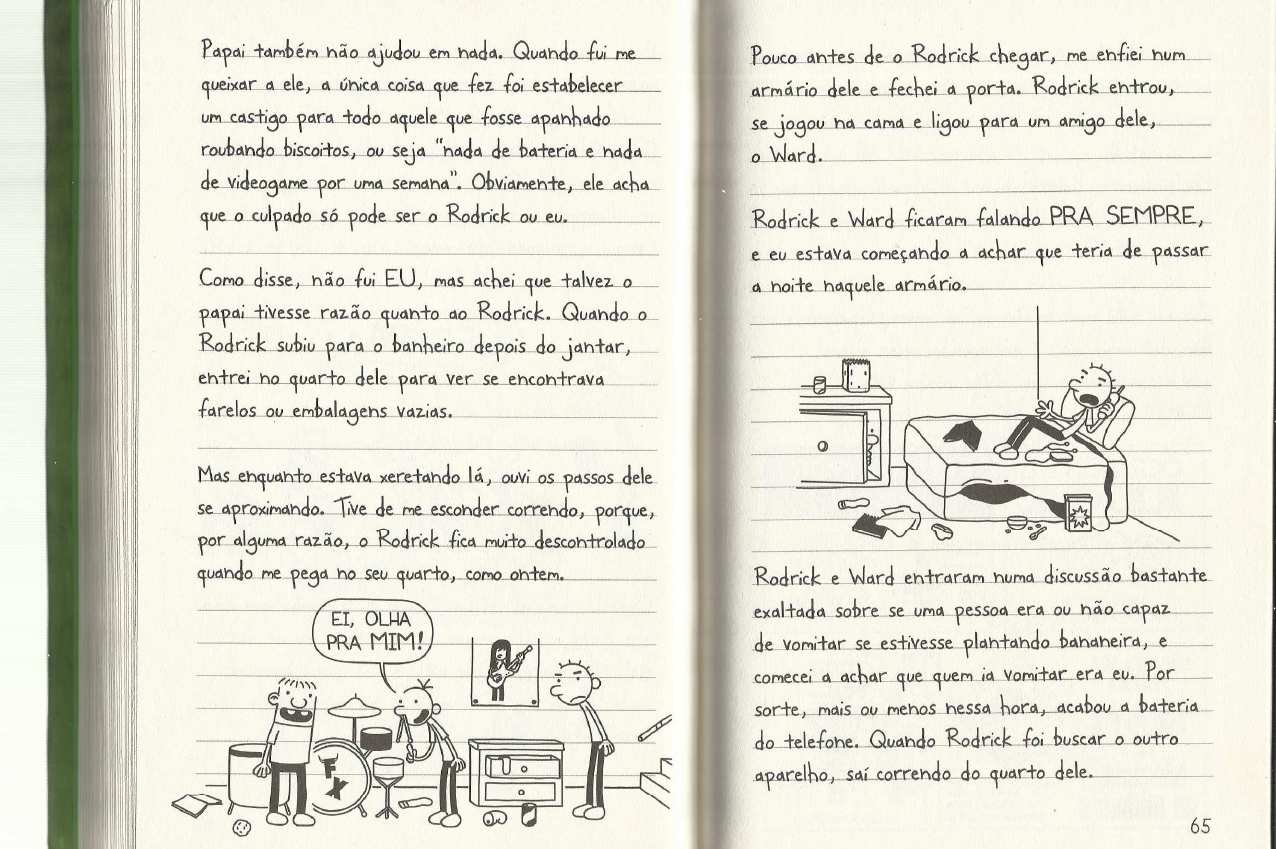 Papai também não ajudou em nada. Quando fui me
queixar a ele, a única coisa que fez foi estabelecer
um castigo para todo aquele que fosse apanhado
roubando biscoitos, ou seja "nada de bateria e nada
de videogame por uma semana". Obviamente, ele acha
que o culpado só pode ser o Rodrick ou eu.
Como disse, não fui EU, mas achei que talvez o
papai tivesse razão quanto ao Rodrick. Quando o
Rodrick subiu para o banheiro depois do jantar,
entrei no quarto dele para ver se encontrava
farelos ou embalagens vazias.
Mas enquanto estava xeretando lá, ouvi os passos dele
se aproximando. Tive de me esconder correndo, porque,
por alguma razão, o Rodrick fica muito descontrolado
quando me pega no seu quarto, como ontem.
EI, OLHA
PRA MIM!
FX
Pouco antes de o Rodrick chegar, me enfiei num
armário dele e fechei a porta. Rodrick entrou,
se jogou na cama e ligou para um amigo dele,
o Ward.
Rodrick e Ward ficaram falando PRA SEMPRE,
e eu estava começando a achar que teria de passar
a noite naquele armário.
Rodrick e Ward entraram numa discussão bastante
exaltada sobre se uma pessoa era ou não capaz
de vomitar se estivesse plantando bananeira, e
comecei a achar que quem ia vomitar era eu. Por
sorte, mais ou menos nessa hora, acabou a bateria
do telefone. Quando Rodrick foi buscar o outro
aparelho, saí correndo do quarto dele.
65